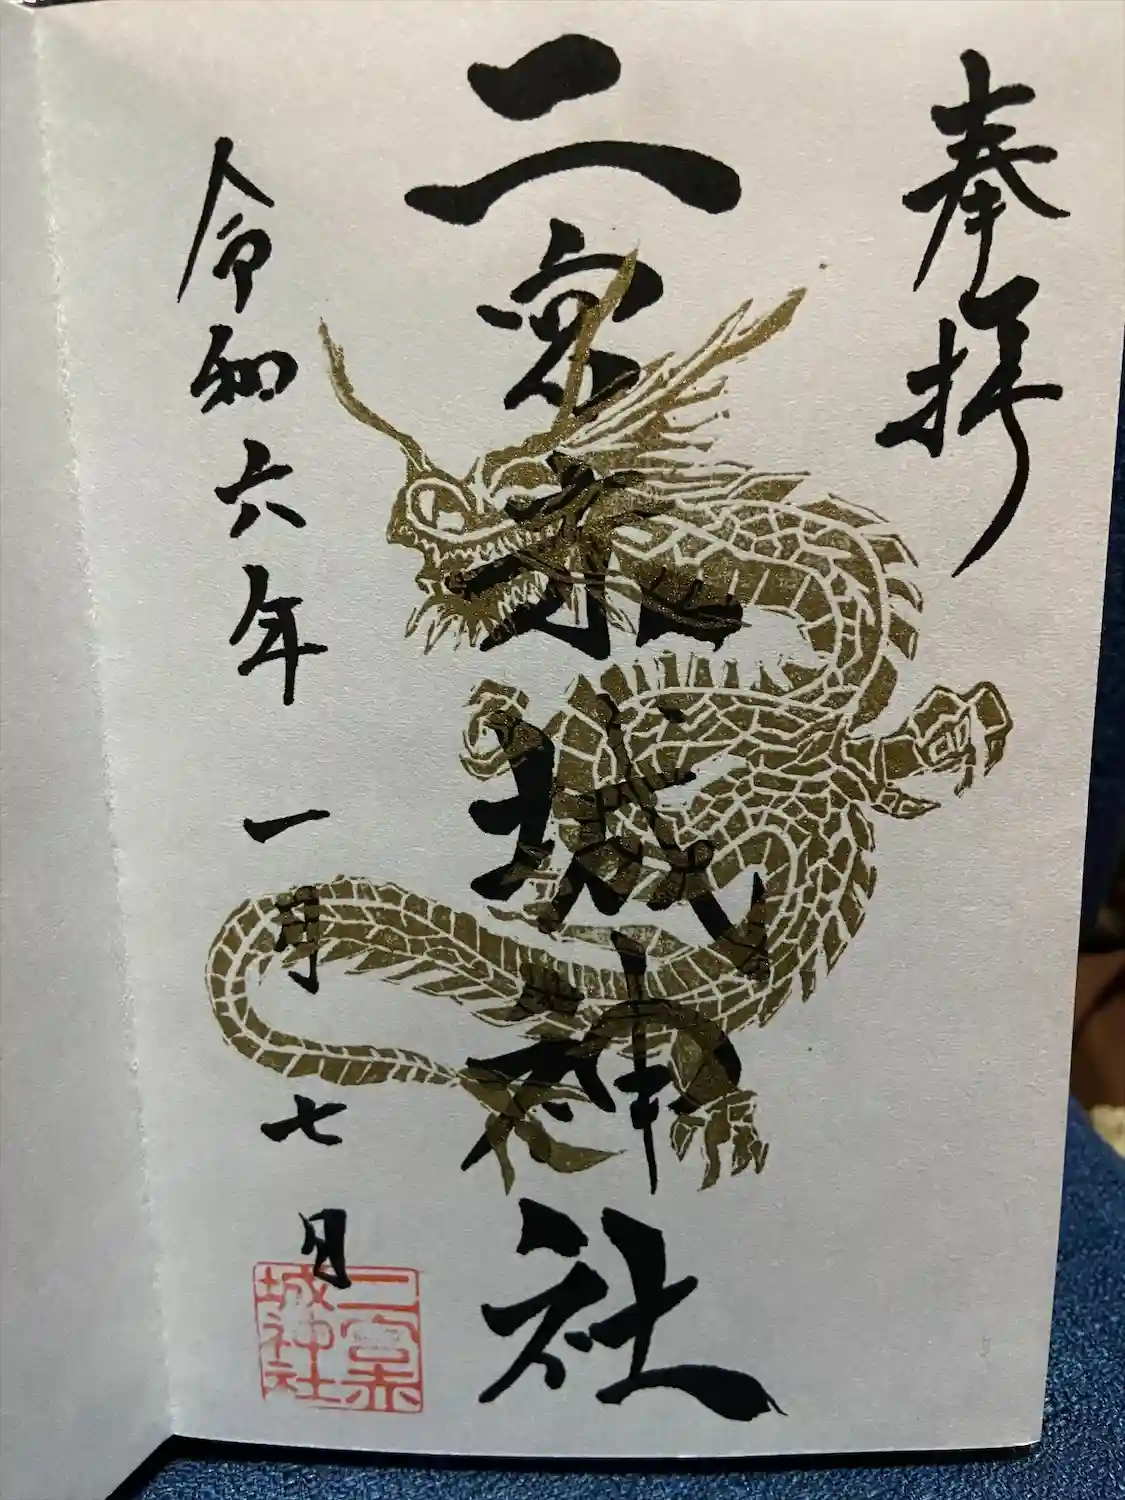 奉拝
二宮赤城神社
令和六年一月七日
二宮赤
城神社